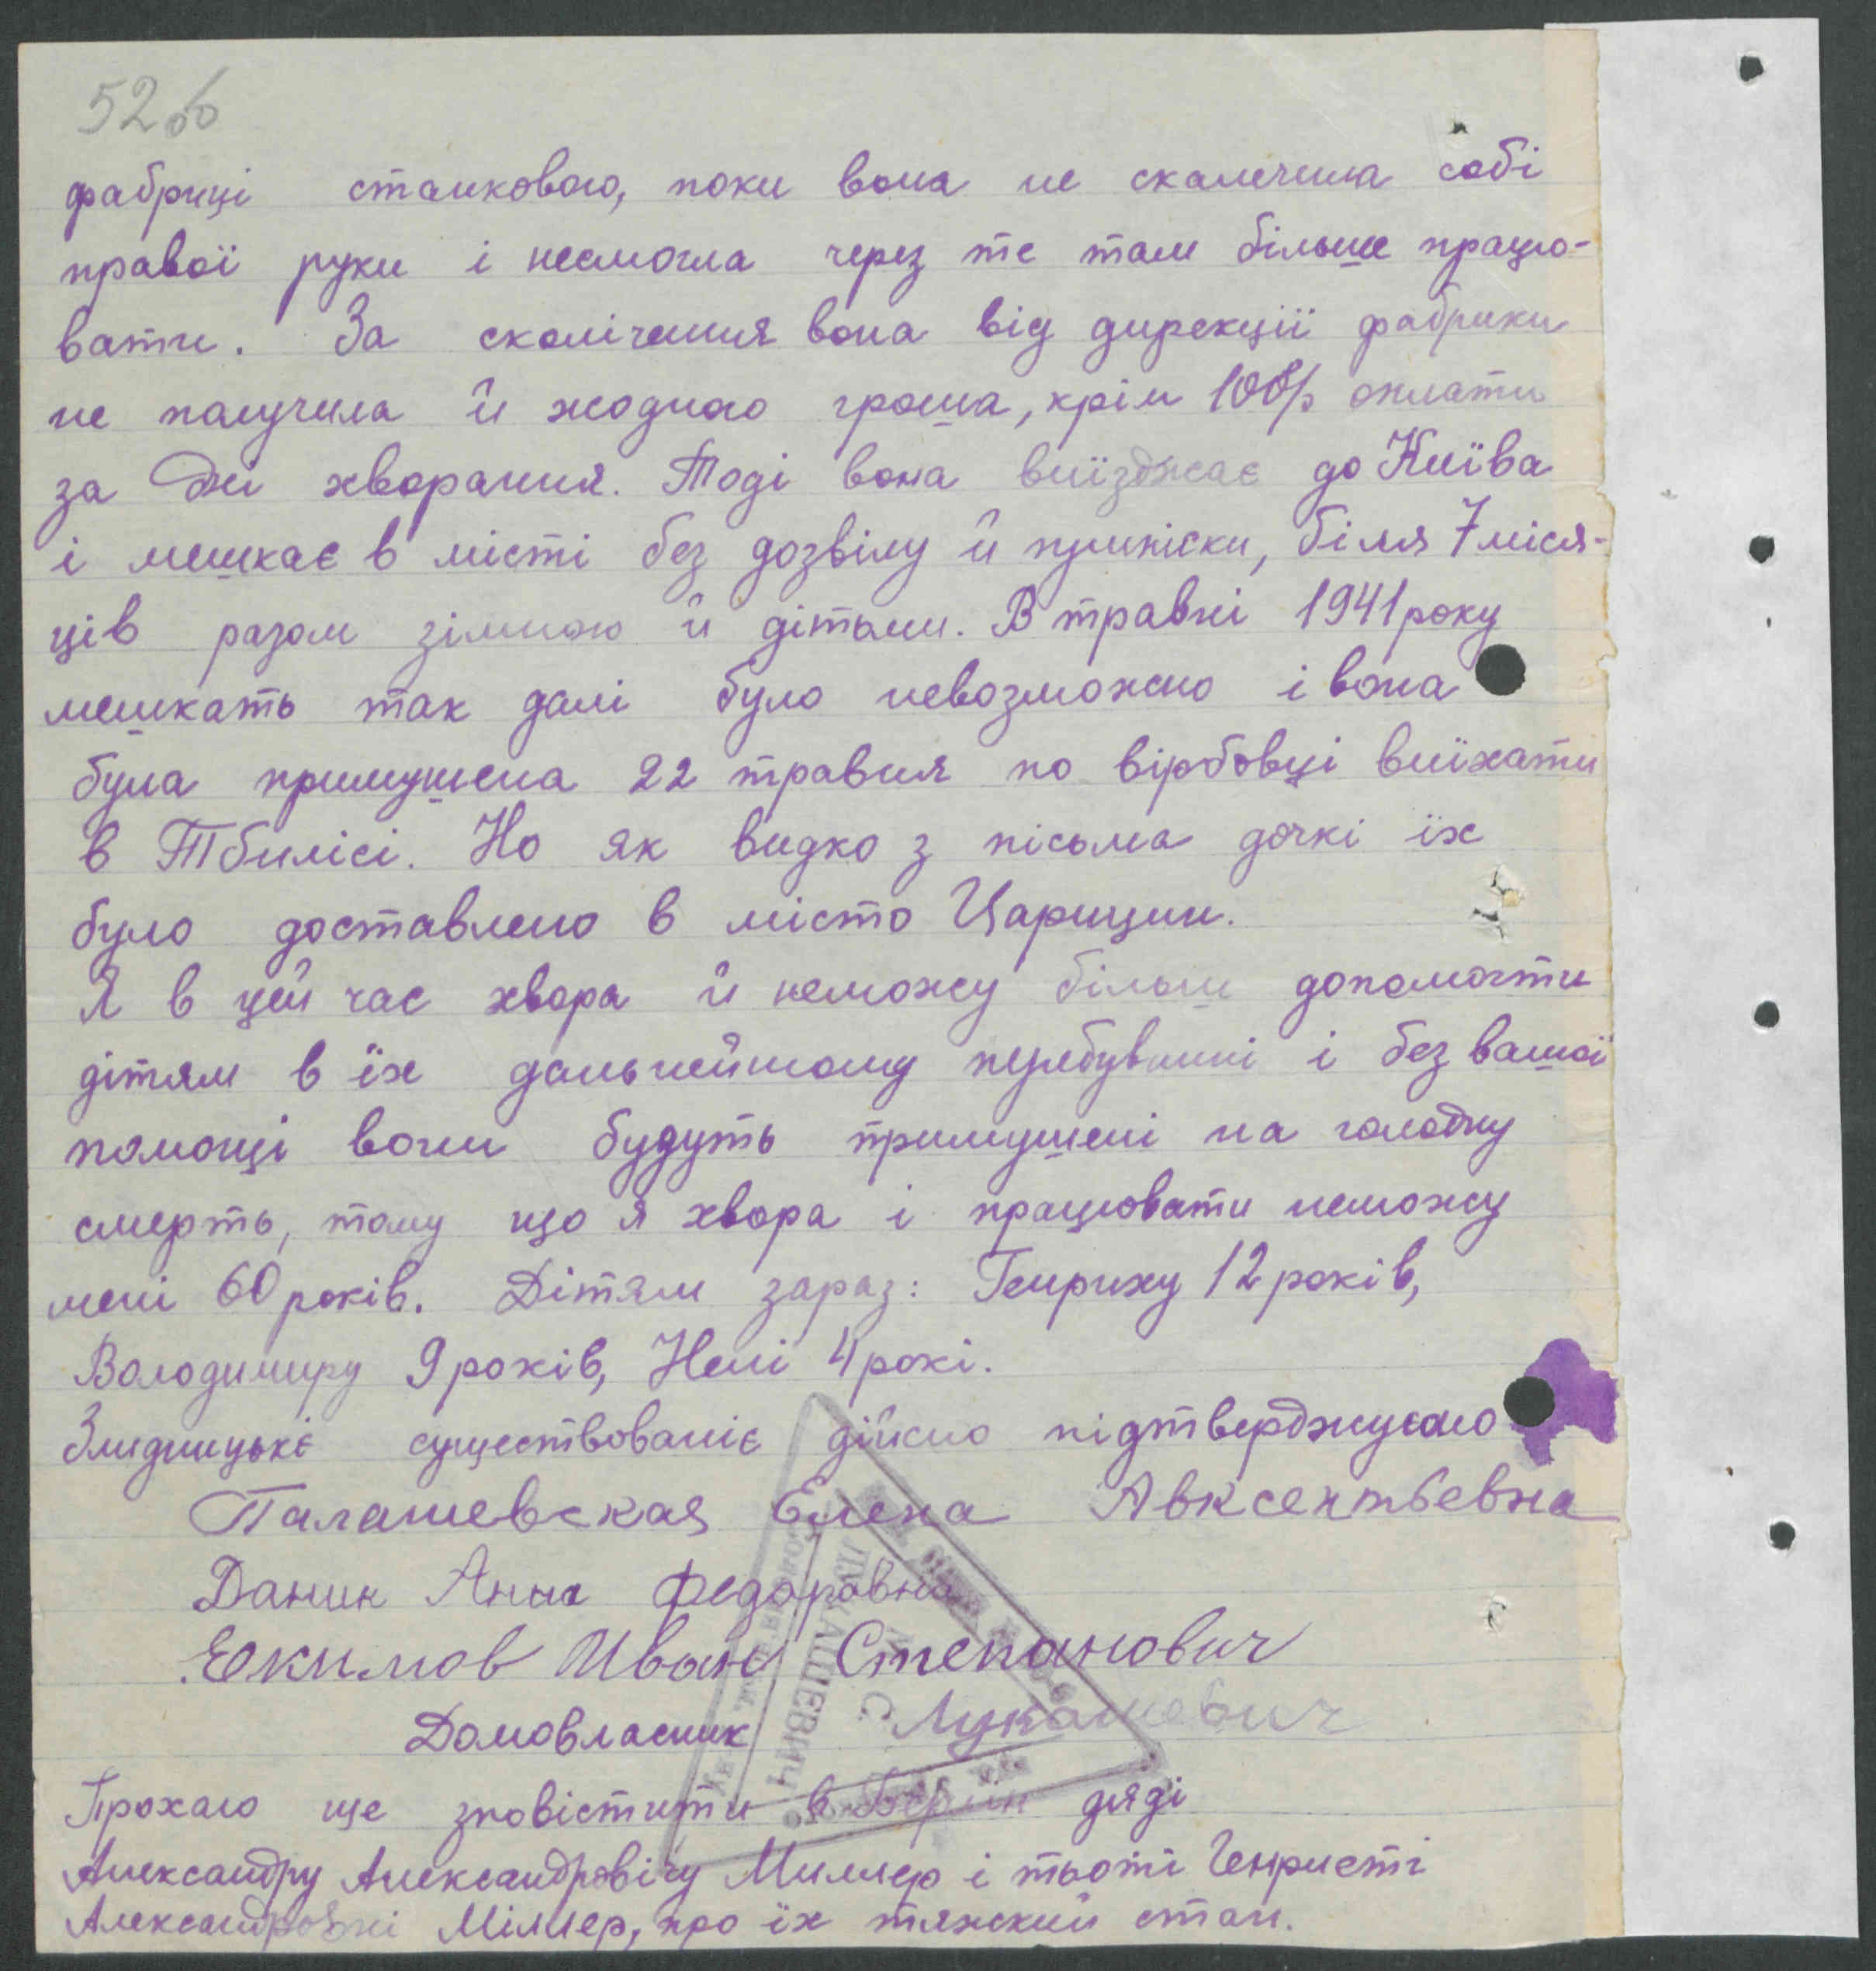 52об
фабриці станковою, поки вона не скалечила собі
правої руки і несмогла через те там більше працю-
вати. За скалічения вона від дирекції фабрики
не получила й жодного гроша, крім 100р оплати
за дні хворання. Тоді вона виїзджає до Київа
і мешкає в місті без дозвілу й припіски, біля 7 міся-
ців разом зімною й дітьми. В травні 1941 року
мешкать так далі було невозможно і вона
була примушена 22 травня по вірбовці виїхати
в Тбилісі. Но як видко з пісьма дочкі їх
було доставлено в місто Царицин.
Я в цей час хвора й неможу більш допомогти
дітям в їх дальнейшому перебуванні і без вашої
помощі вони будуть примушені на голодну
смерть, тому що я хвора і працювати неможу
мені 60 років. Дітям зараз: Генриху 12 років,
Володимиру 9 років, Нелі 4 рокі.
Злидницькіє существованіє дійсно підтверджуємо
Палашевская Елена Авксентьевна
Даник Анна Федоравна
Екимов Иван Степанович
Домовласник Лукашевич
ЛУКАШЕВИЧ
М. С.
Прохаю ще зповістити в Берлін дяді
Александру Александровічу Миллер і тьоті Генриєті
Александровні Міллер, про їх тяжский стан.